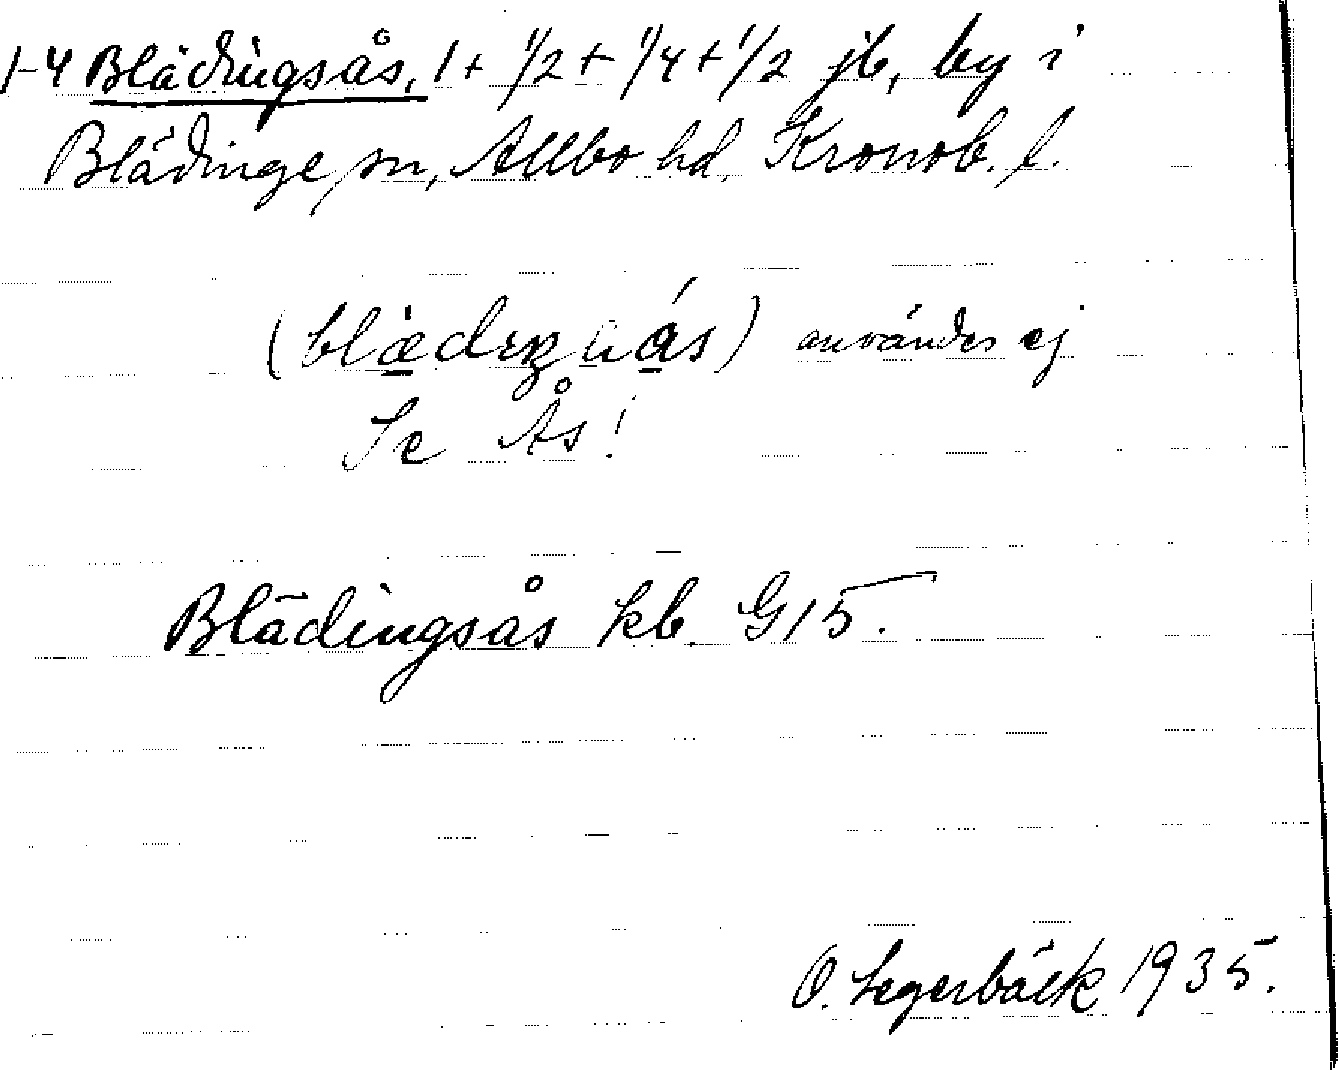 1-4 Blädingsås, 1 + 1/2 + 1/4 + 1/2 jb, by i
Blädinge sn, Allbo hd, Kronob. l.
användes ej
Se Ås!
Blädingsås kb. G15.
O. Segerbäck 1935.